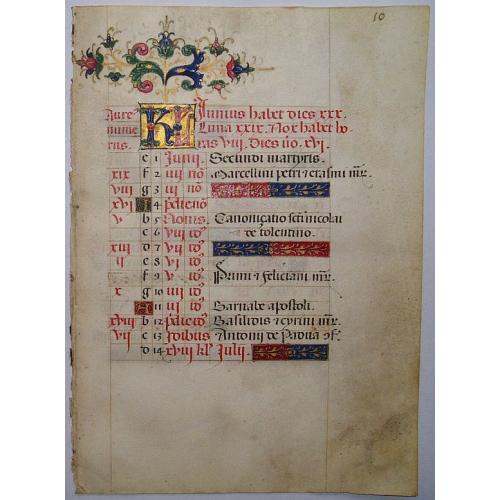 10
Aure⁹ KL Iunius habet dies xxx.
nume Luna xxix. Nox habet ho
rus. ras viij. Dies vo. xvj.
e 1 Junij. Secundi martyris.
xix f 2 iiij nō Marcellini petri ⁊ erasmi mr̄.
viij g 3 iij nō
xvj A 4 pdie nō
v b 5 Nonis. Canonicatio sctī nicolai
c 6 viij id⁹ de tolentino.
xiij d 7 vij id⁹
ij e 8 vj id⁹
f 9 v id⁹ Primi ⁊ feliciani mr̄.
x g 10 iiij id⁹
A 11 iij id⁹ Barnabe apostoli.
xviij b 12 pdie id⁹ Basilidis ⁊ cyrini mr̄.
vij c 13 Idibus Antonii de Padua ↄf.
d 14 xviij kl̄ Julij.